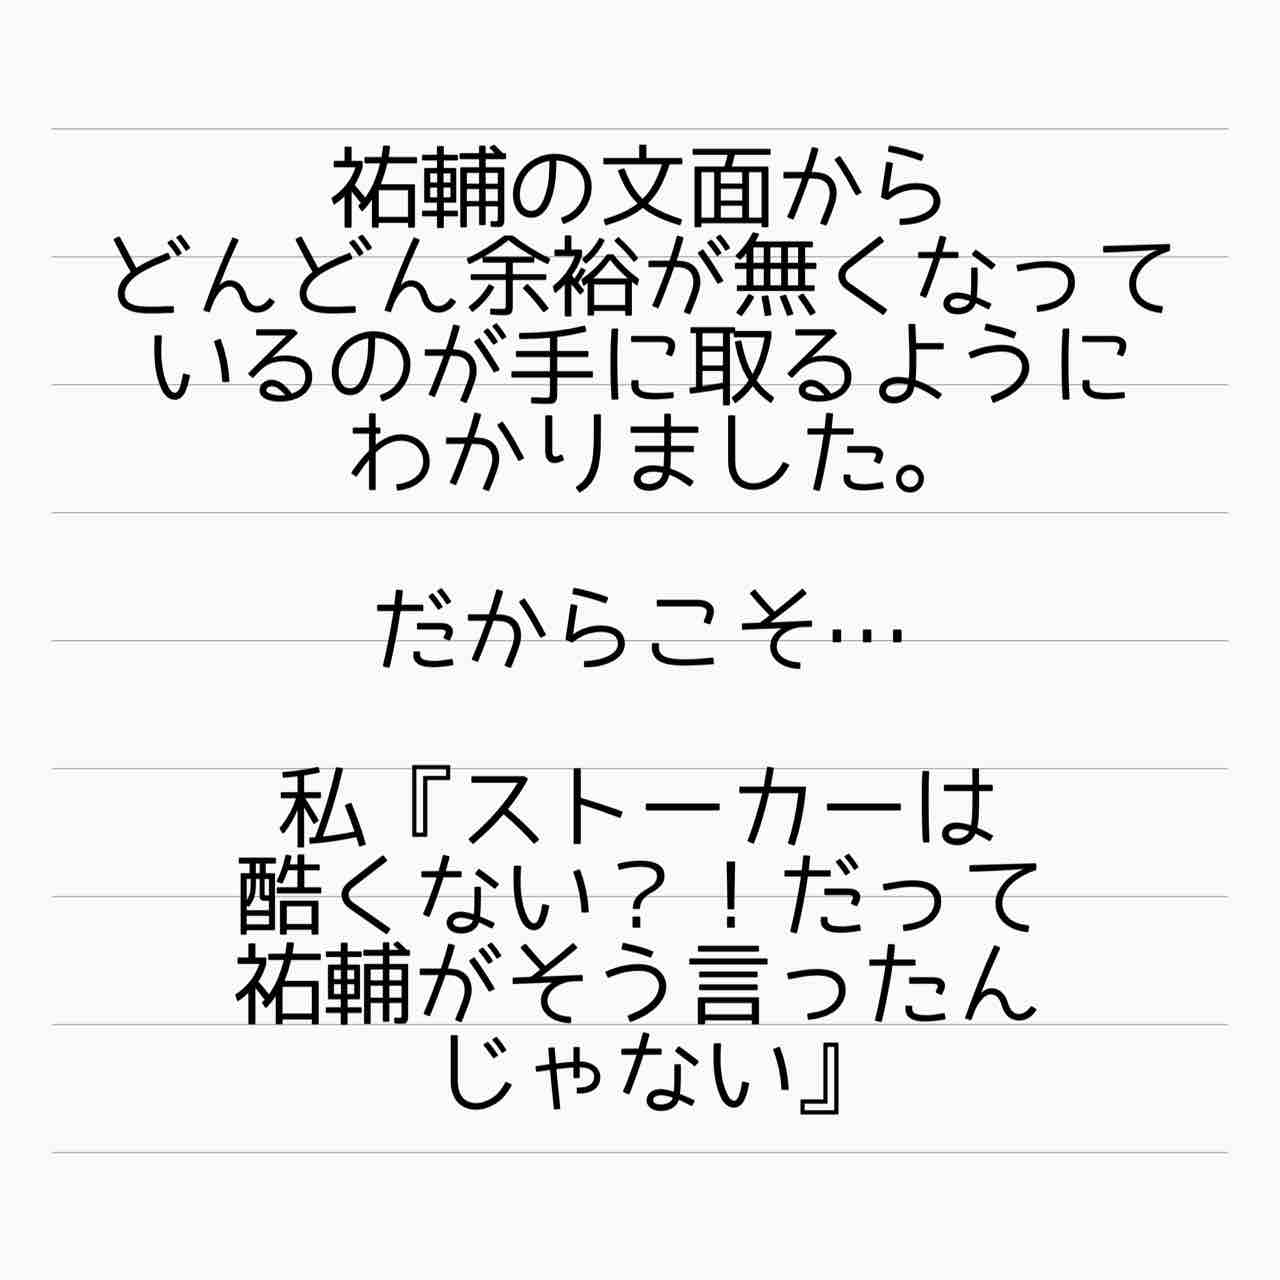 祐輔の文面から
どんどん余裕が無くなって
いるのが手に取るように
わかりました。
だからこそ…
私『ストーカーは
酷くない？！だって
祐輔がそう言ったん
じゃない』